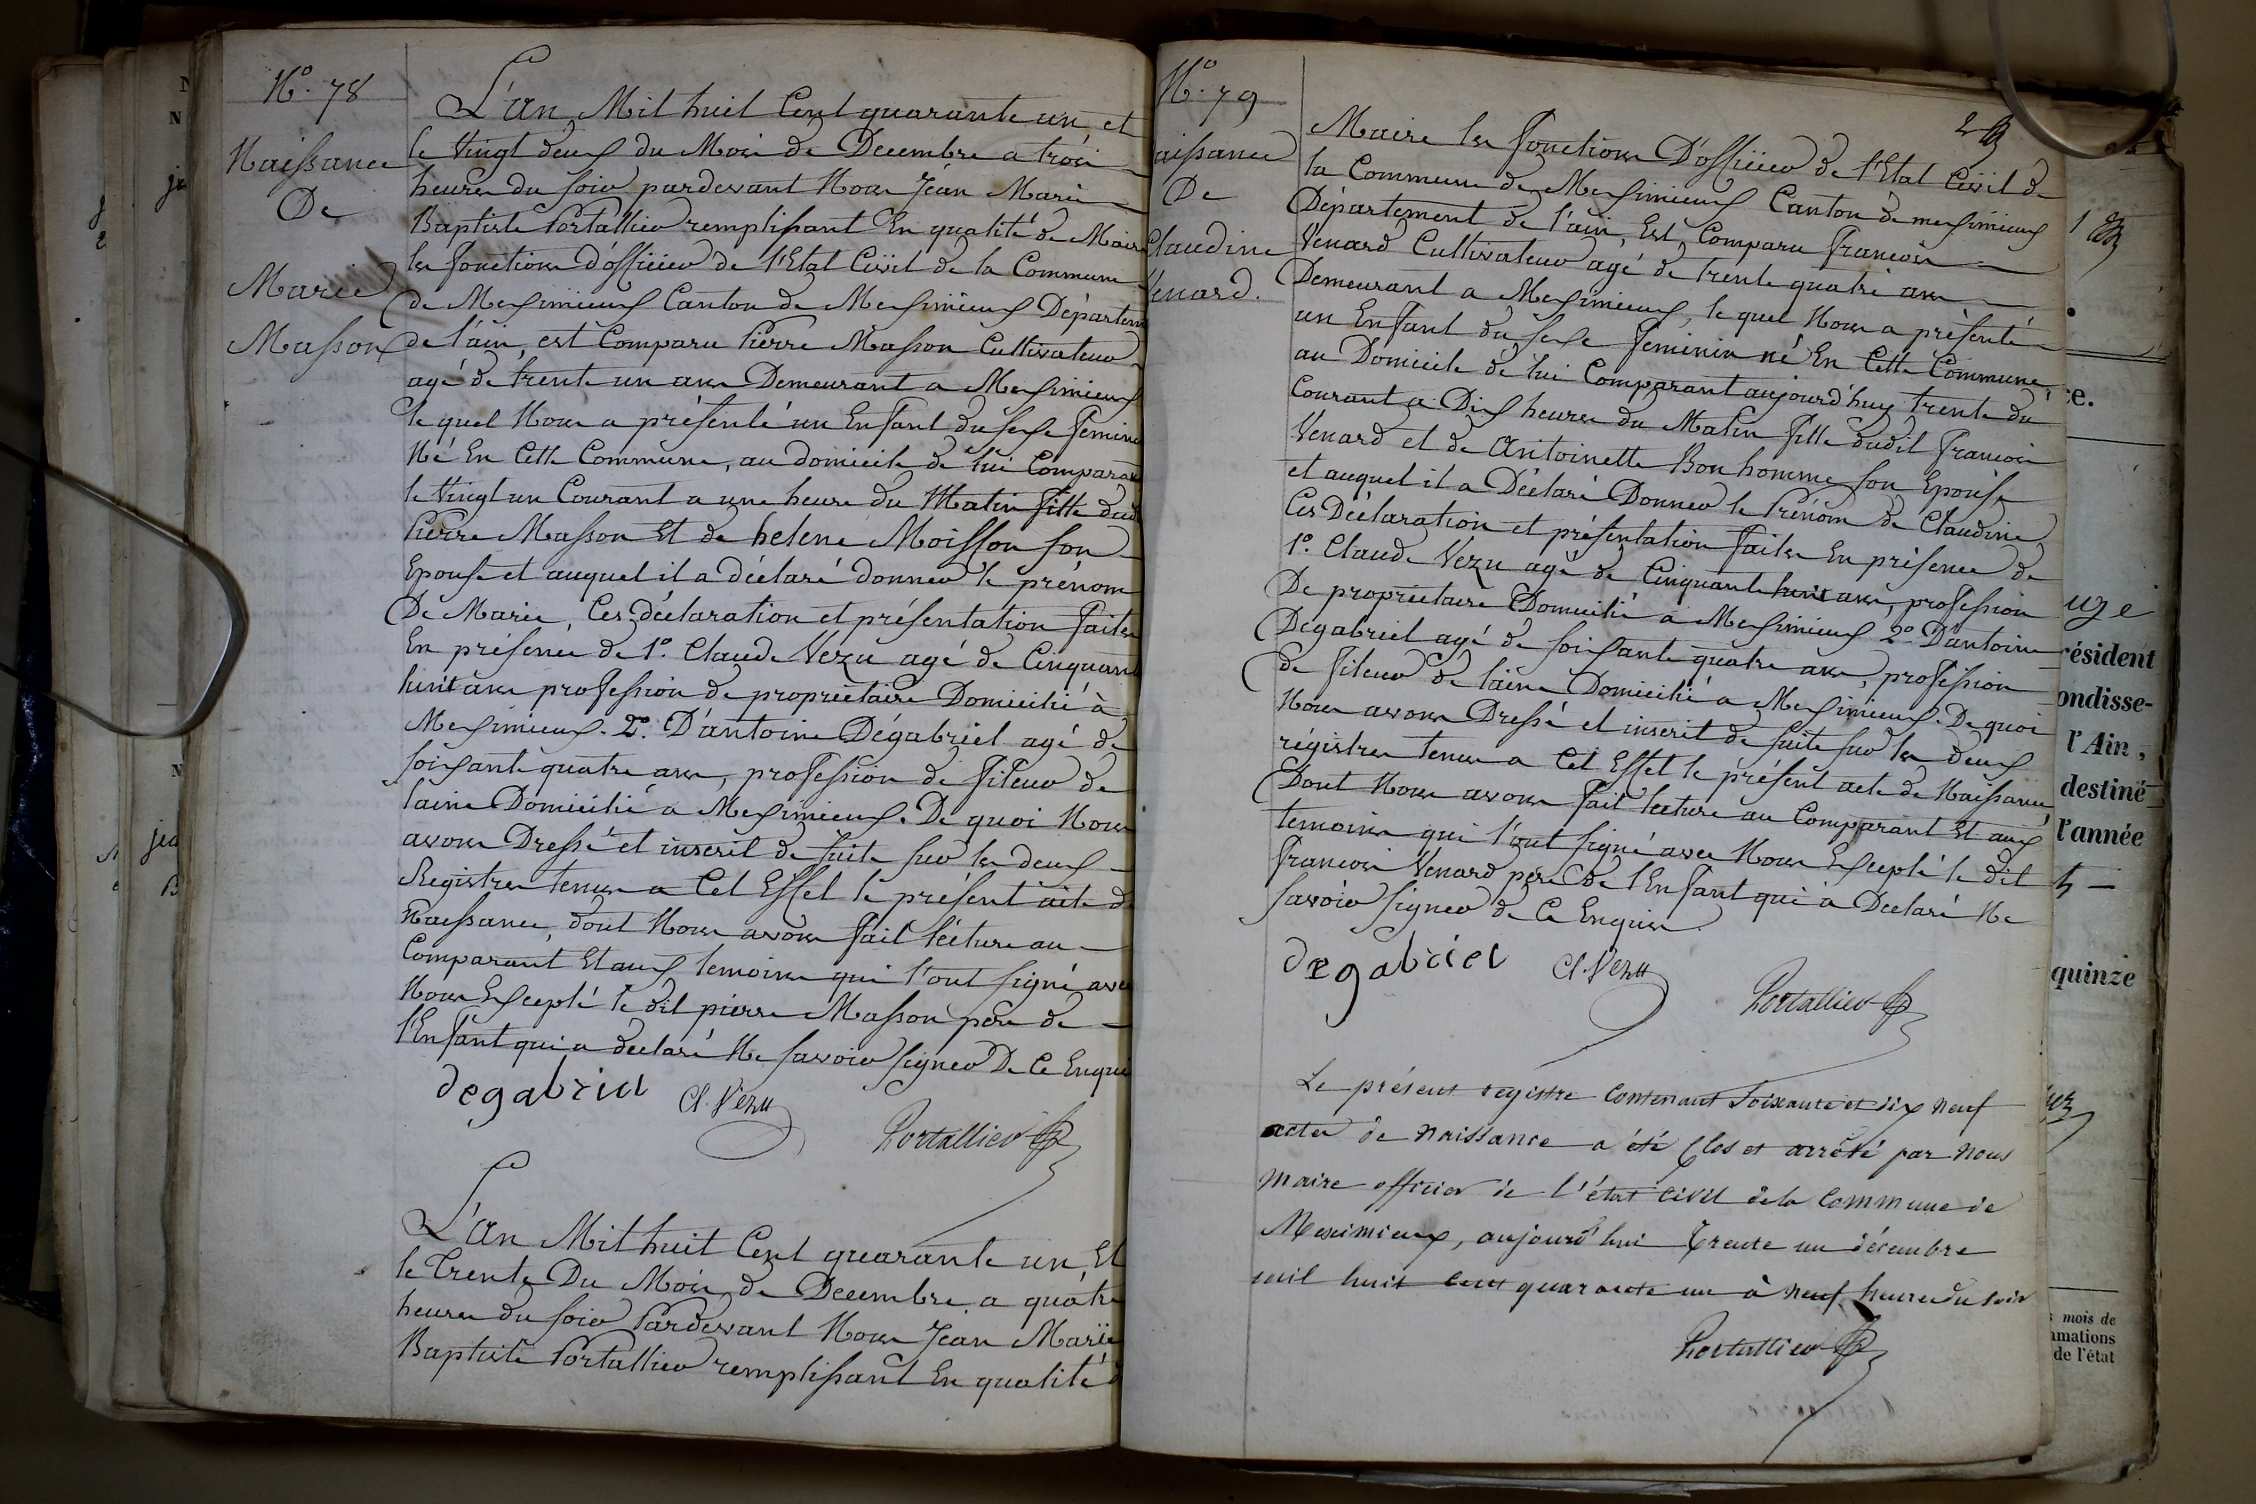 N.° 78
Naissance
De
Marie
Masson
L'an Mil huit Cent quarante un, et
le Vingt deux du Mois de Decembre a trois
heures du soir pardevant Nous Jean Marie
Baptiste Portallier remplissant En qualité de Maire
les fonctions d'officier de l'Etat Civil de la Commune
de Meximieux Canton de Meximieux Départem
de l'ain, est Comparu Pierre Masson Cultivateur
agé de trente un ans Demeurant a Meximieux
le quel Nous a présenté un Enfant du sexe feminin
Né En Cette Commune, au domicile de lui Comparant
le Vingt un Courant a une heure du Matin fille dud
Pierre Masson Et de helene Moisson son
Epouse et auquel il a déclaré donner le prénom
De Marie, Ces déclaration et présentation faites
En présence de 1.° Claude Vezu agé de Cinquante
huit ans profession de propriétaire Domicilié à
Meximieux. 2.° D'antoine Dégabriel agé de
soixante quatre ans, profession de fileur de
laine Domicilié a Meximieux. De quoi Nous
avons Dressé et inscrit de suite sur les deux
Registres tenus a Cet Effet le présent acte de
Naissance, dont Nous avons fait lécture au
Comparant Et aux temoins qui l'ont signé avec
Nous Excepté le dit pierre Masson pere de
l'Enfant qui a déclaré Ne savoir signer De Ce Enquis
degabriel Cl. Vezu
Portallier
L'an Mil huit Cent quarante un, Et
le trente Du Mois de Decembre, a quatre
heures du soir Pardevant Nous Jean Marie
Baptiste Portallier remplissant En qualité d
N.° 79
aissance
De
Claudine
Venard.
Maire les fonctions D'officier de l'Etat Civil de
la Commune de Meximieux Canton de meximieux
Département de l'ain, Est Comparu francois
Venard Cultivateur agé de trente quatre ans
Demeurant a Meximieux, le quel Nous a présenté
un Enfant du sexe feminin né En Cette Commune,
au Domicile de lui Comparant aujourd'huy trente du
Courant a Dix heures du Matin fille dudit francois
Venard et de antoinette Bonhomme son Epouse
et auquel il a Déclaré Donner le Prénom de Claudine
Ces Déclaration et présentation faites En présence de
1.° Claude Vezu agé de Cinquante huit ans, profession
De propriétaire Domicilié a Meximieux 2.° D'antoine
Degabriel agé de soixante quatre ans, profession
de fileur de laine Domicilié a Meximieux. De quoi
Nous avons Dressé et inscrit de suite sur les deux
régistres tenus a Cet Effet le présent acte de Naissance
Dont Nous avons fait lecture au Comparant Et aux
temoins qui l'ont signé avec Nous Excepté le dit
francois Venard pere de l'Enfant qui a Declaré Ne
savoir signer de Ce Enquis
degabriel Cl. Vezu
Portallier
Le présent registre contenant soixante et dix neuf
actes de naissance a été Clos et arrêté par nous
maire officier de l'état civil de la Commune de
Meximieux, aujourd'hui trente un décembre
mil huit cent quarante un à neuf heures du soir
Portallier
ce.
résident
ondisse-
l'Ain,
destiné
l'année
quinze
mois de
amations
de l'état